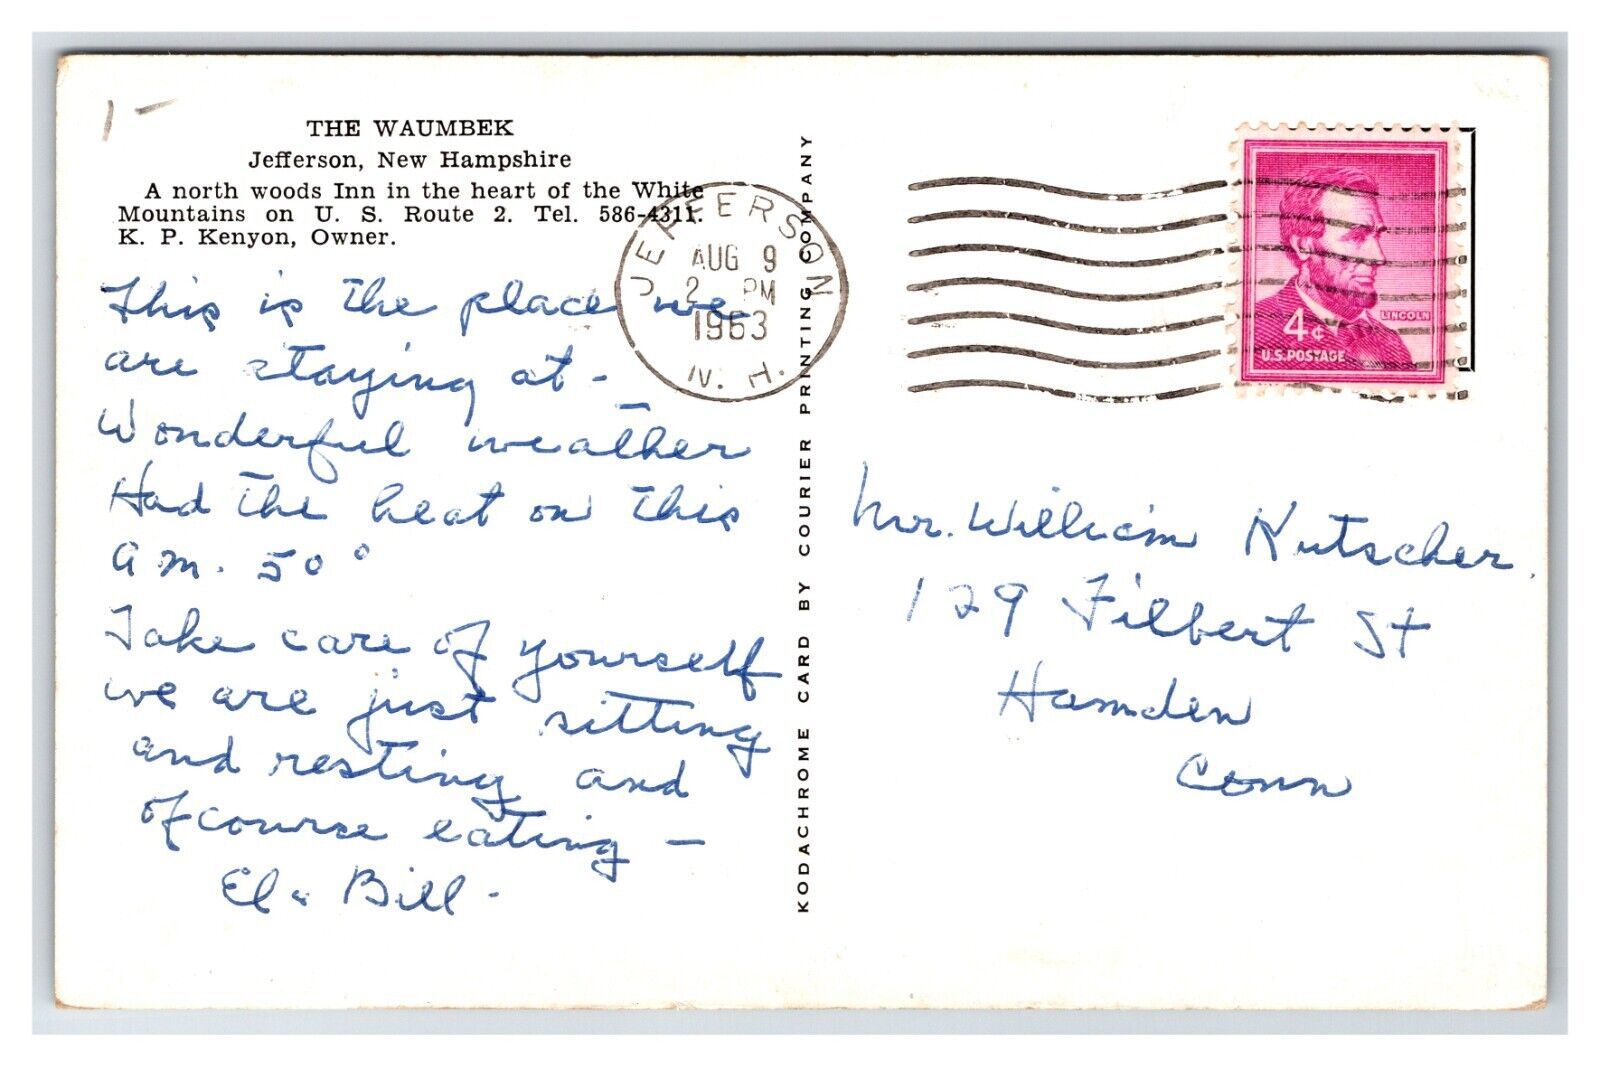 1 -
THE WAUMBEK
Jefferson, New Hampshire
A north woods Inn in the heart of the White
Mountains on U. S. Route 2. Tel. 586-4311.
K. P. Kenyon, Owner.
This is the place we
are staying at -
Wonderful weather
Had the heat on this
am. 50°
Take care of yourself
we are just sitting
and resting and
of course eating -
El & Bill -
JEFFERSON
AUG 9
2 PM
1963
N. H.
KODACHROME CARD BY COURIER PRINTING COMPANY
LINCOLN
4¢
U.S. POSTAGE
Mr. William Kutscher
129 Filbert St
Hamden
Conn